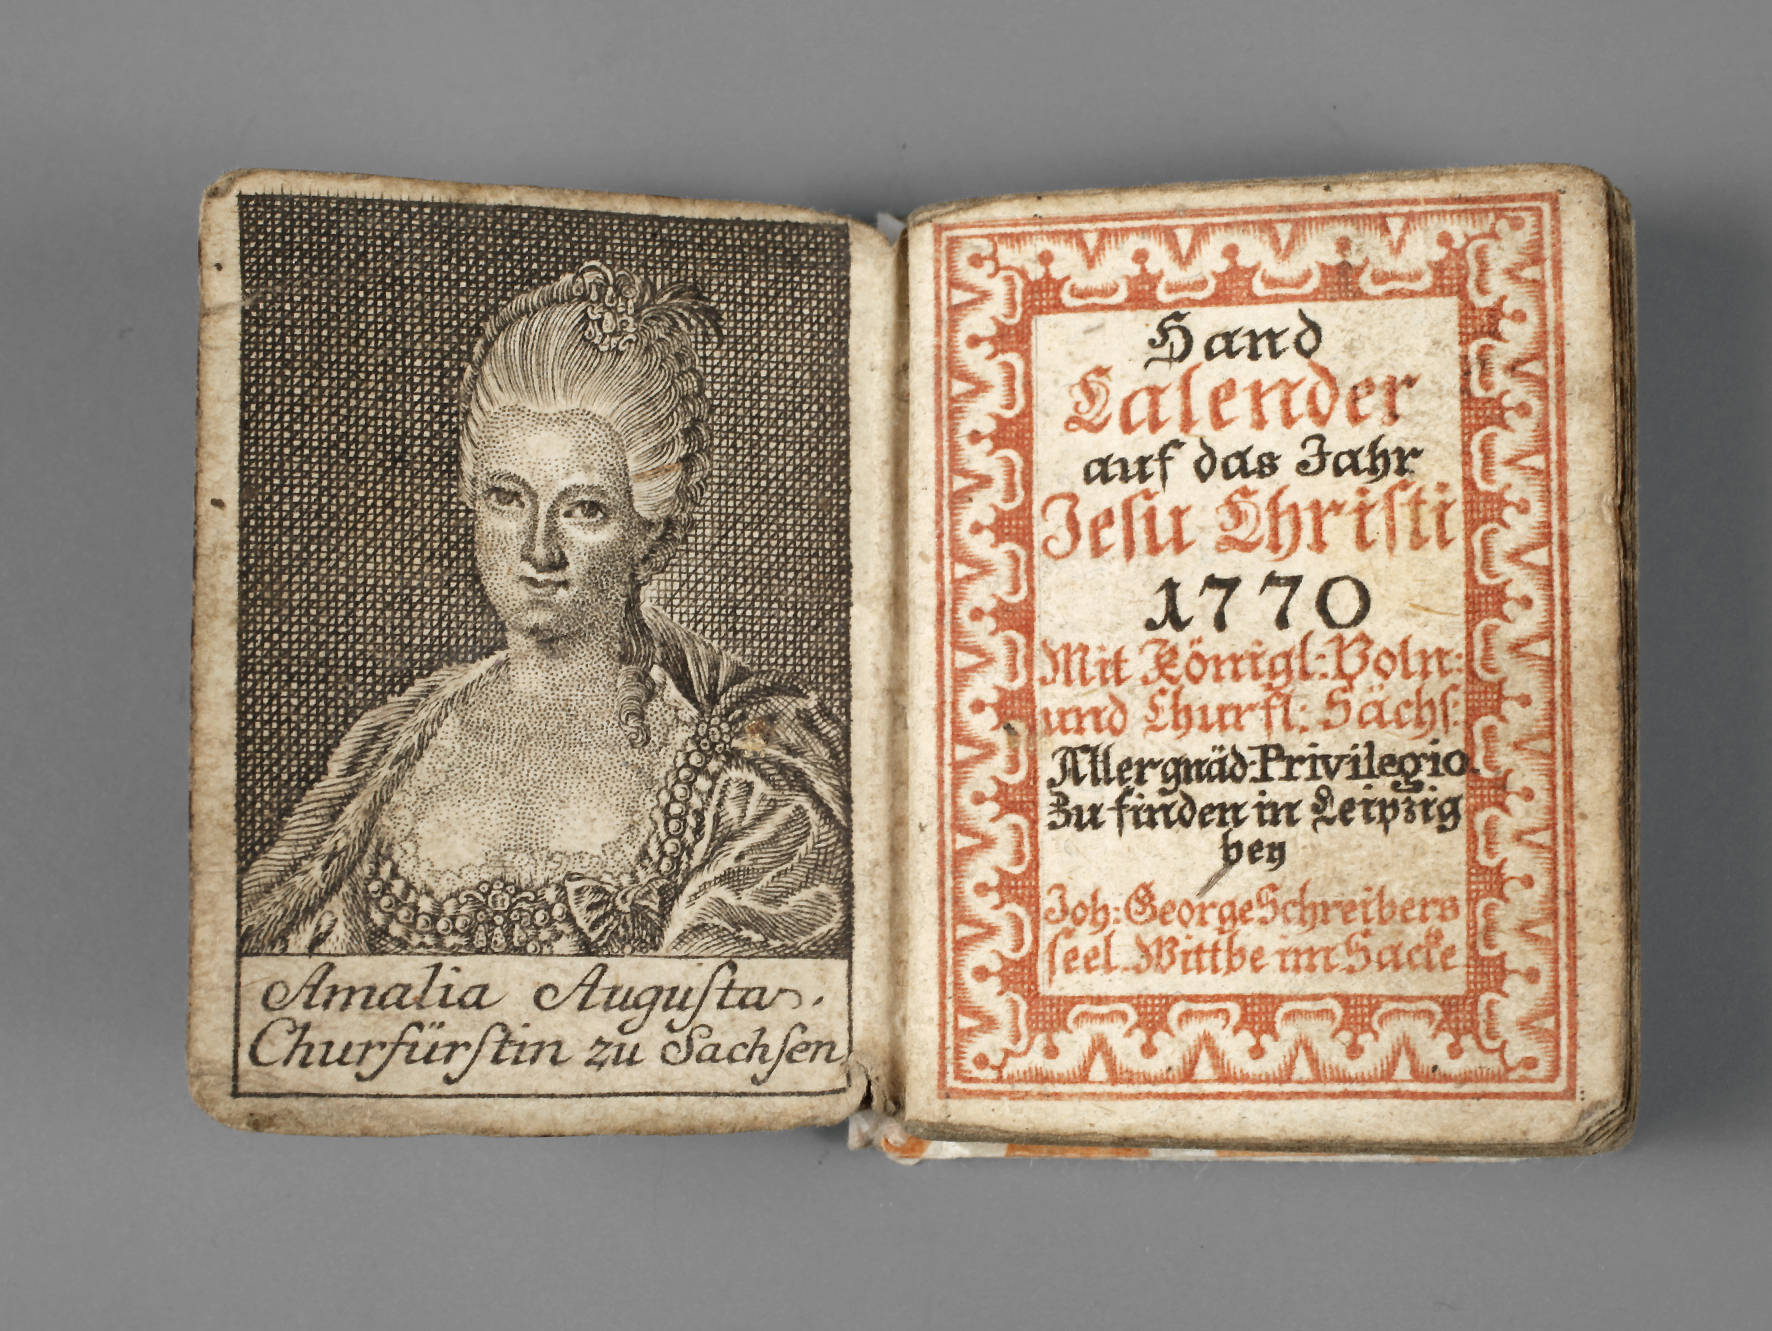 Amalia Auguſta.
Churfürſtin zu Sachſen
Hand
Calender
auf das Jahr
Jeſu Chriſti
1770
Mit Königl: Poln:
und Churfl: Sächſ:
Allergnäd. Privilegio.
Zu finden in Leipzig
bey
Joh: George Schreibers
ſeel. Wittbe im Sacke